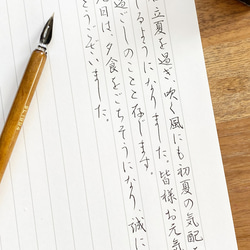 立夏を過ぎ吹く風にも初夏の気配
じるようになりました。皆様お元気
過ごしのことと存じます。
日は、夕食をごちそうになり誠に
とうございました。